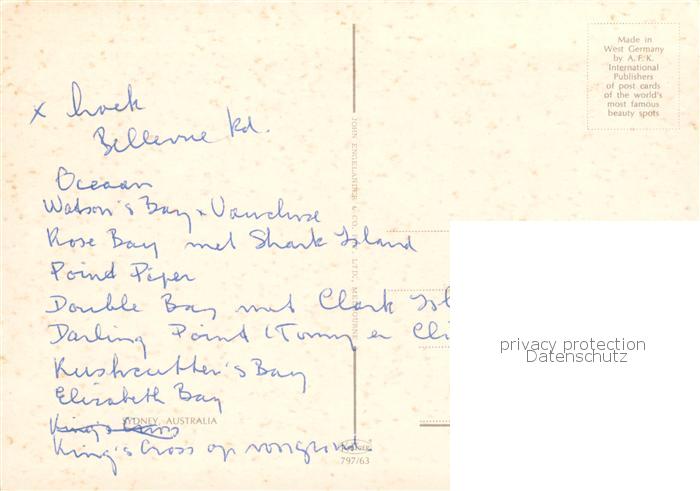 x hoek
Bellevue Rd.
Oceaan
Watson's Bay + Vaucluse
Rose Bay met Shark Island
Point Piper
Double Bay met Clark Isl
Darling Point (Tommy en Cli
Rushcutter's Bay
Elizabeth Bay
King's Cross
King's Cross op voorgrond.
SYDNEY, AUSTRALIA
797/63
JOHN ENGELANDER & CO. PTY. LTD., MELBOURNE
Made in
West Germany
by A.F.K.
International
Publishers
of post cards
of the world's
most famous
beauty spots
privacy protection
Datenschutz